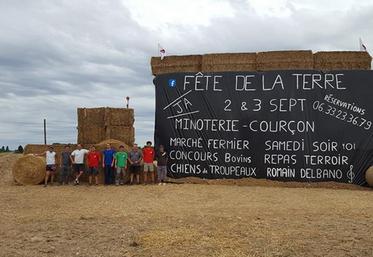 FÊTE DE LA TERRE
JA
2 & 3 SEPT
RÉSERVATIONS
06 33 23 36 79
MINOTERIE-COURÇON
MARCHÉ FERMIER SAMEDI SOIR 101
CONCOURS BOVINS REPAS TERROIR
CHIENS de TROUPEAUX ROMAIN DELBANO